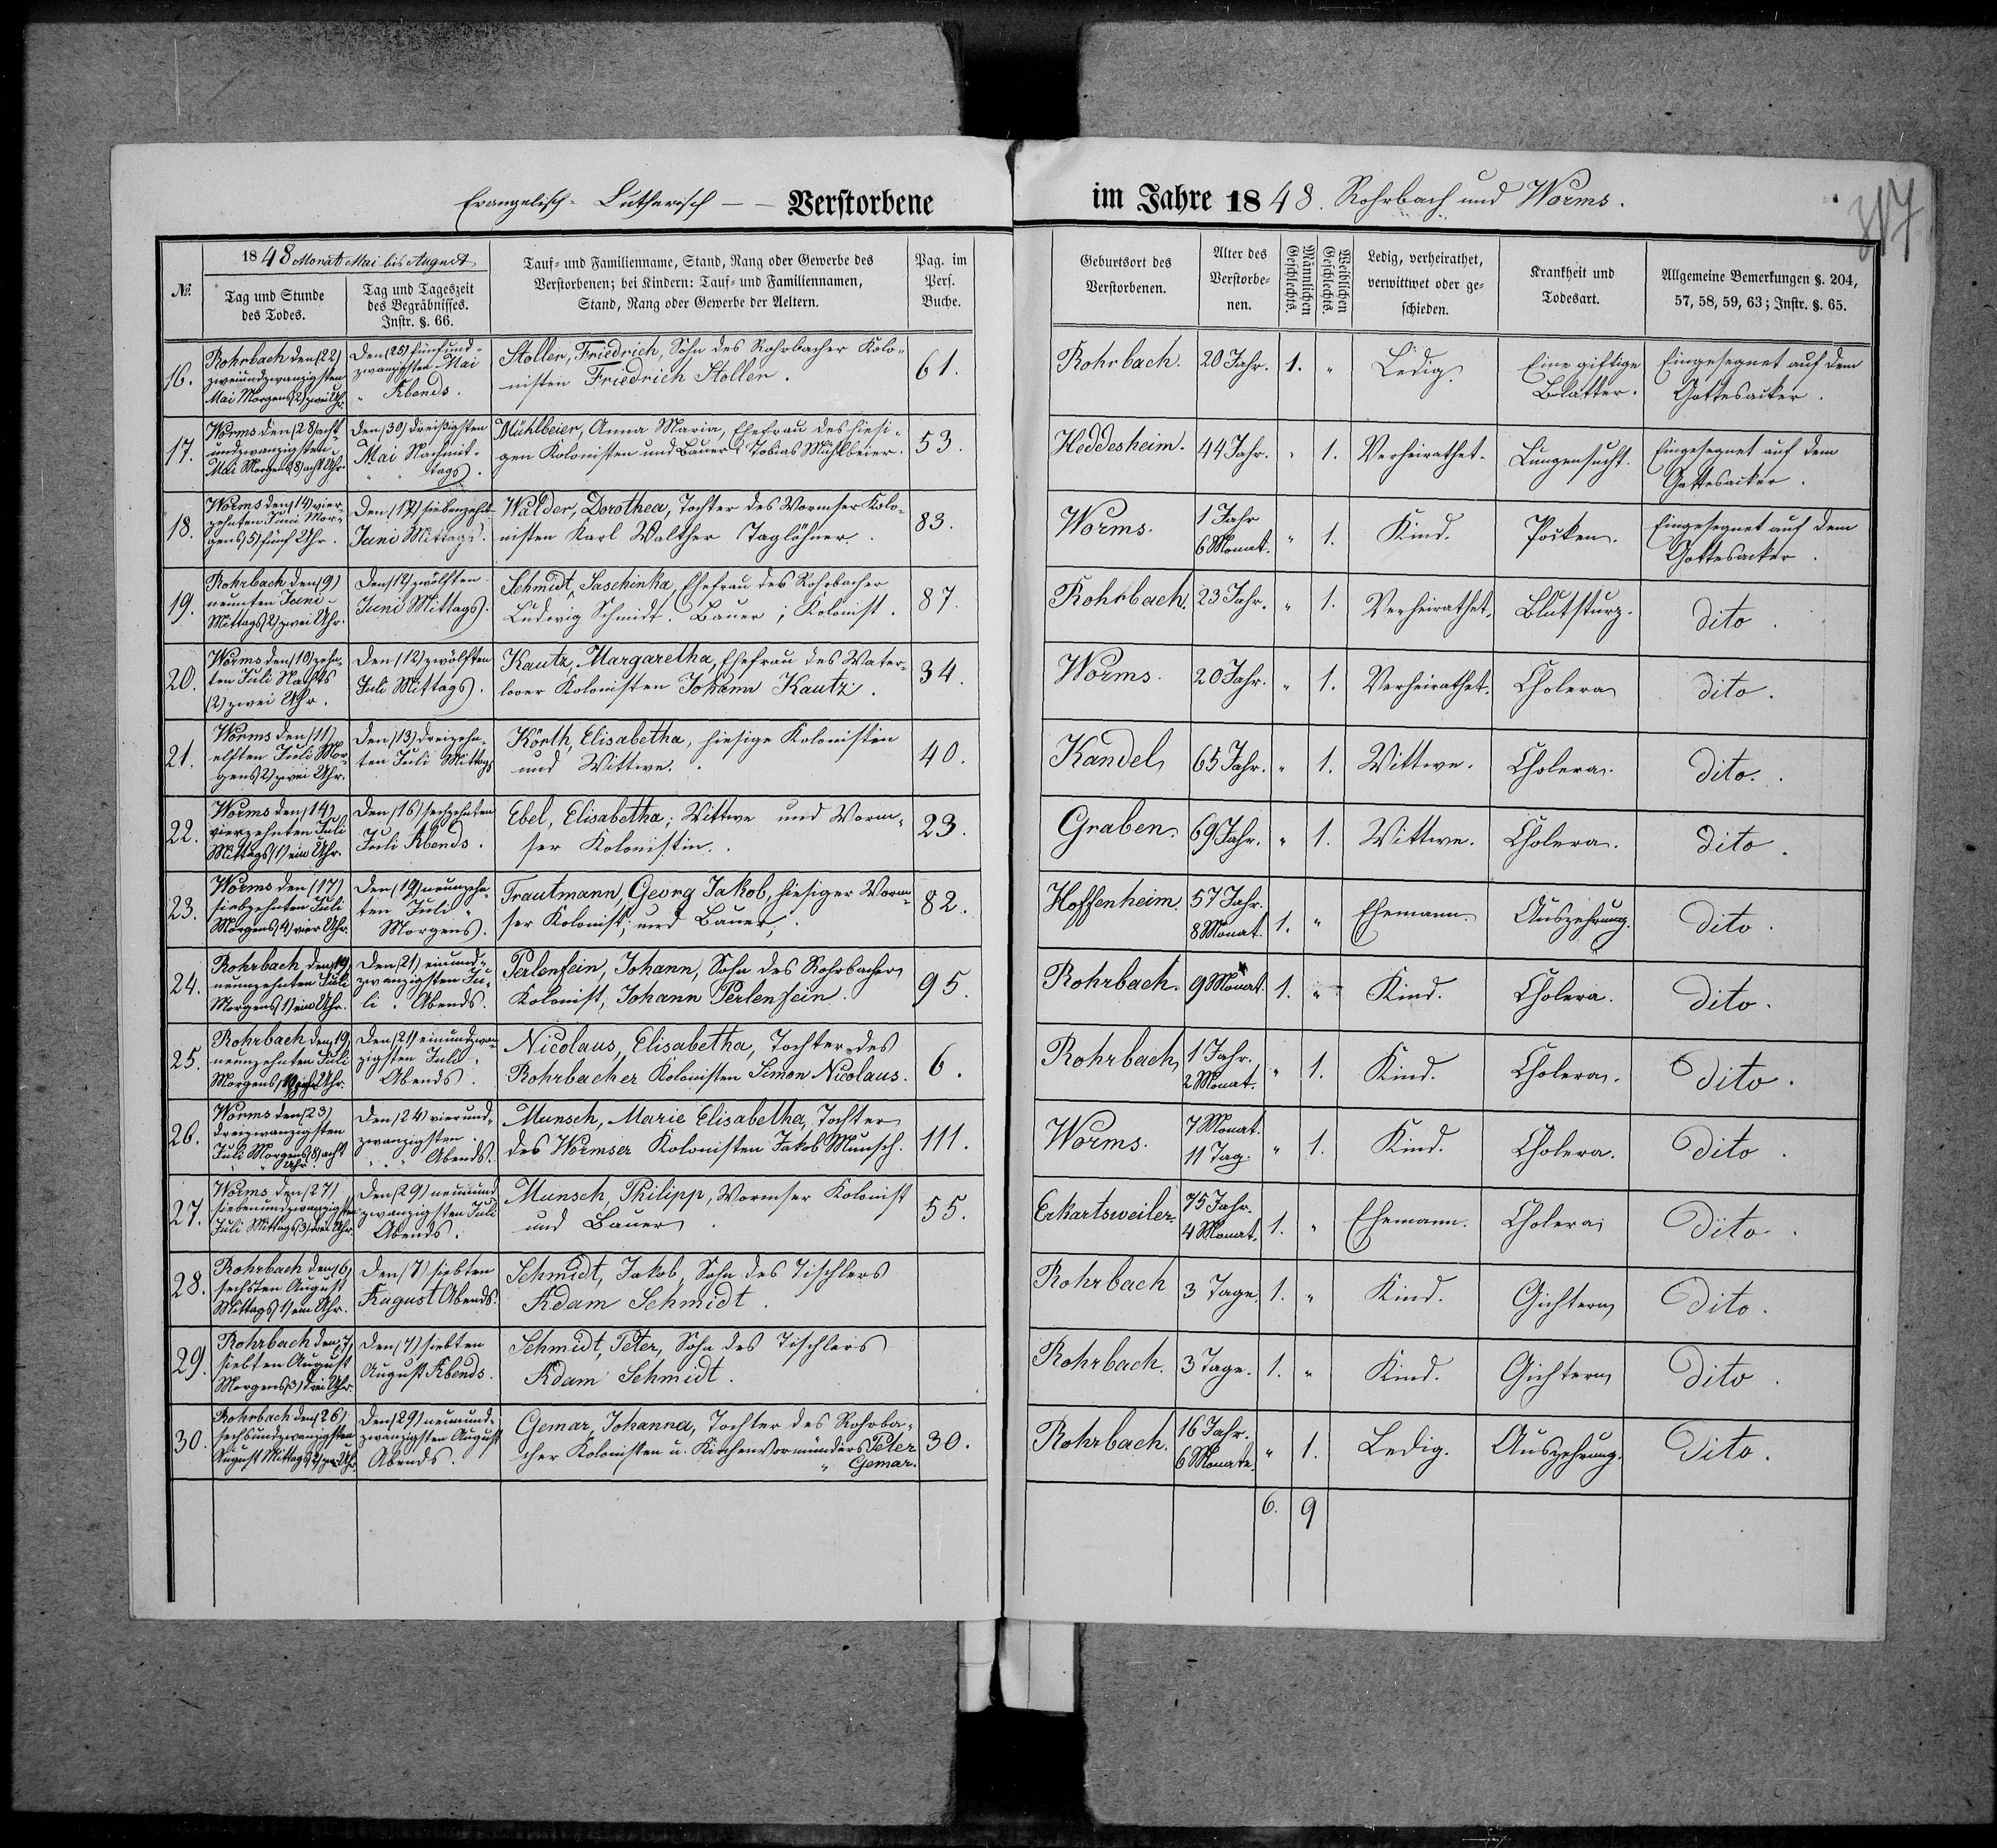 Evangelisch-Lutherisch — Verstorbene
im Jahre 1848. Rohrbach und Worms.
317
№.
1848 Monat Mai bis August
Tag und Stunde
des Todes.
Tag und Tageszeit
des Begräbnisses.
Instr. §. 66.
Tauf- und Familienname, Stand, Rang oder Gewerbe des
Verstorbenen; bei Kindern: Tauf- und Familiennamen,
Stand, Rang oder Gewerbe der Aeltern.
Pag. im
Pers.
Buche.
Geburtsort des
Verstorbenen.
Alter des
Verstorbe-
nen.
Männlichen
Geschlechts.
Weiblichen
Geschlechts.
Ledig, verheirathet,
verwittwet oder ge-
schieden.
Krankheit und
Todesart.
Allgemeine Bemerkungen §. 204,
57, 58, 59, 63; Instr. §. 65.
16.
Rohrbach den (22)
zweiundzwanzigsten
Mai Morgens (2) zwei Uhr.
Den (25) fünfund-
zwanzigsten Mai
" Abends.
Stoller, Friedrich, Sohn des Rohrbacher Kolo-
nisten Friedrich Stoller.
61.
Rohrbach.
20 Jahr.
1.
"
Ledig.
Eine giftige
Blatter.
Eingesegnet auf dem
Gottesacker.
17.
Worms den (28) acht-
undzwanzigsten
Mai Morgens (8) acht Uhr
Den (30) dreißigsten
Mai Nachmit-
" " tags.
Mühlbeier, Anna Maria, Ehefrau des hiesi-
gen Kolonisten und Bauers Tobias Mühlbeier.
53.
Heddesheim.
44 Jahr.
"
1.
Verheirathet.
Lungensucht.
Eingesegnet auf dem
Gottesacker.
18.
Worms den (14) vier-
zehnten Juni Mor-
gens (5) fünf Uhr.
Den (17) siebenzehnt
Juni Mittags.
Walder, Dorothea, Tochter des Wormser Kolo-
nisten Karl Walther Taglöhner.
83.
Worms.
1 Jahr
6 Monat.
"
1.
Kind.
Pocken.
Eingesegnet auf dem
Gottesacker.
19.
Rohrbach den (9)
neunten Juni
Mittags (2) zwei Uhr.
Den (12) zwölften
Juni Mittags.
Schmidt, Saschinka, Ehefrau des Rohrbacher
Ludwig Schmidt. Bauer; Kolonist.
87.
Rohrbach.
23 Jahr.
"
1.
Verheirathet.
Blutsturz.
dito.
20.
Worms den (10) zehn-
ten Juli Nachts
(2) zwei Uhr.
Den (12) zwölften
Juli Mittags.
Kautz, Margaretha, Ehefrau des Water-
looer Kolonisten Johann Kautz.
34.
Worms.
20 Jahr.
"
1.
Verheirathet.
Cholera
dito.
21.
Worms den (11)
elften Juli Mor-
gens (2) zwei Uhr.
Den (13) dreizehn-
ten Juli Mittags
Körth, Elisabetha, hiesige Kolonistin
und Wittwe.
40.
Kandel,
65 Jahr.
"
1.
Wittwe.
Cholera.
dito.
22.
Worms den (14)
vierzehnten Juli
Mittags (1) ein Uhr.
Den (16) sechzehnten
Juli Abends.
Ebel, Elisabetha; Wittwe und Worm-
ser Kolonistin.
23.
Graben.
69 Jahr.
"
1.
Wittwe.
Cholera.
dito.
23.
Worms den (17)
siebzehnten Juli
Morgens (4) vier Uhr.
Den (19) neunzehn-
ten Juli "
Morgens.
Trautmann, Georg Jakob, hiesiger Worm-
ser Kolonist, und Bauer,
82.
Hoffenheim.
57 Jahr.
8 Monat.
1.
"
Ehemann.
Auszehrung.
dito.
24.
Rohrbach den (19)
neunzehnten Juli
Morgens (1) ein Uhr.
Den (21) einund-
zwanzigsten Ju-
li. Abends.
Perlenfein, Johann, Sohn des Rohrbacher
Kolonist, Johann Perlenfein.
95.
Rohrbach.
9 Monat.
1.
"
Kind.
Cholera.
dito.
25.
Rohrbach den (19)
neunzehnten Juli
Morgens (10) zehn Uhr.
Den (21) einundzwan-
zigsten Juli
Abends.
Nicolaus, Elisabetha, Tochter des
Rohrbacher Kolonisten Simon Nicolaus.
6.
Rohrbach,
1 Jahr.
2 Monat.
"
1.
Kind.
Cholera.
Dito.
26.
Worms den (23)
dreizwanzigsten
Juli Morgens (8) acht
" " Uhr.
Den (24) vierund-
zwanzigsten
" " Abends.
Munsch, Marie Elisabetha, Tochter
des Wormser Kolonisten Jakob Munsch.
111.
Worms.
7 Monat.
11 Tag.
"
1.
Kind.
Cholera.
Dito.
27.
Worms den (27)
siebenundzwanzigsten
Juli Mittags (3) drei Uhr.
Den (29) neunund
zwanzigsten Juli
Abends.
Munsch, Philipp, Wormser Kolonist
und Bauer.
55.
Erkartsweiler.
75 Jahr.
4 Monat.
1.
"
Ehemann.
Cholera
Dito.
28.
Rohrbach den (6)
sechsten August
Mittags (1) ein Uhr.
Den (7) siebten
August Abends.
Schmidt, Jakob, Sohn des Tischlers
Adam Schmidt.
Rohrbach
3 Tage.
1.
"
Kind.
Gichtern
Dito.
29.
Rohrbach den (7)
siebten August
Morgens (3) drei Uhr.
Den (7) siebten
August Abends.
Schmidt, Peter, Sohn des Tischlers
Adam Schmidt.
Rohrbach.
3 Tage.
1.
"
Kind.
Gichtern
Dito.
30.
Rohrbach den (26)
sechsundzwanzigsten
August Mittags (2) zwei Uhr.
Den (29) neunund-
zwanzigsten August
Abends.
Gemar, Johanna, Tochter des Rohrba-
cher Kolonisten u. Kirchenvormünders Peter
" Gemar.
30.
Rohrbach.
16 Jahr.
6 Monate.
"
1.
Ledig.
Auszehrung.
Dito.
6.
9